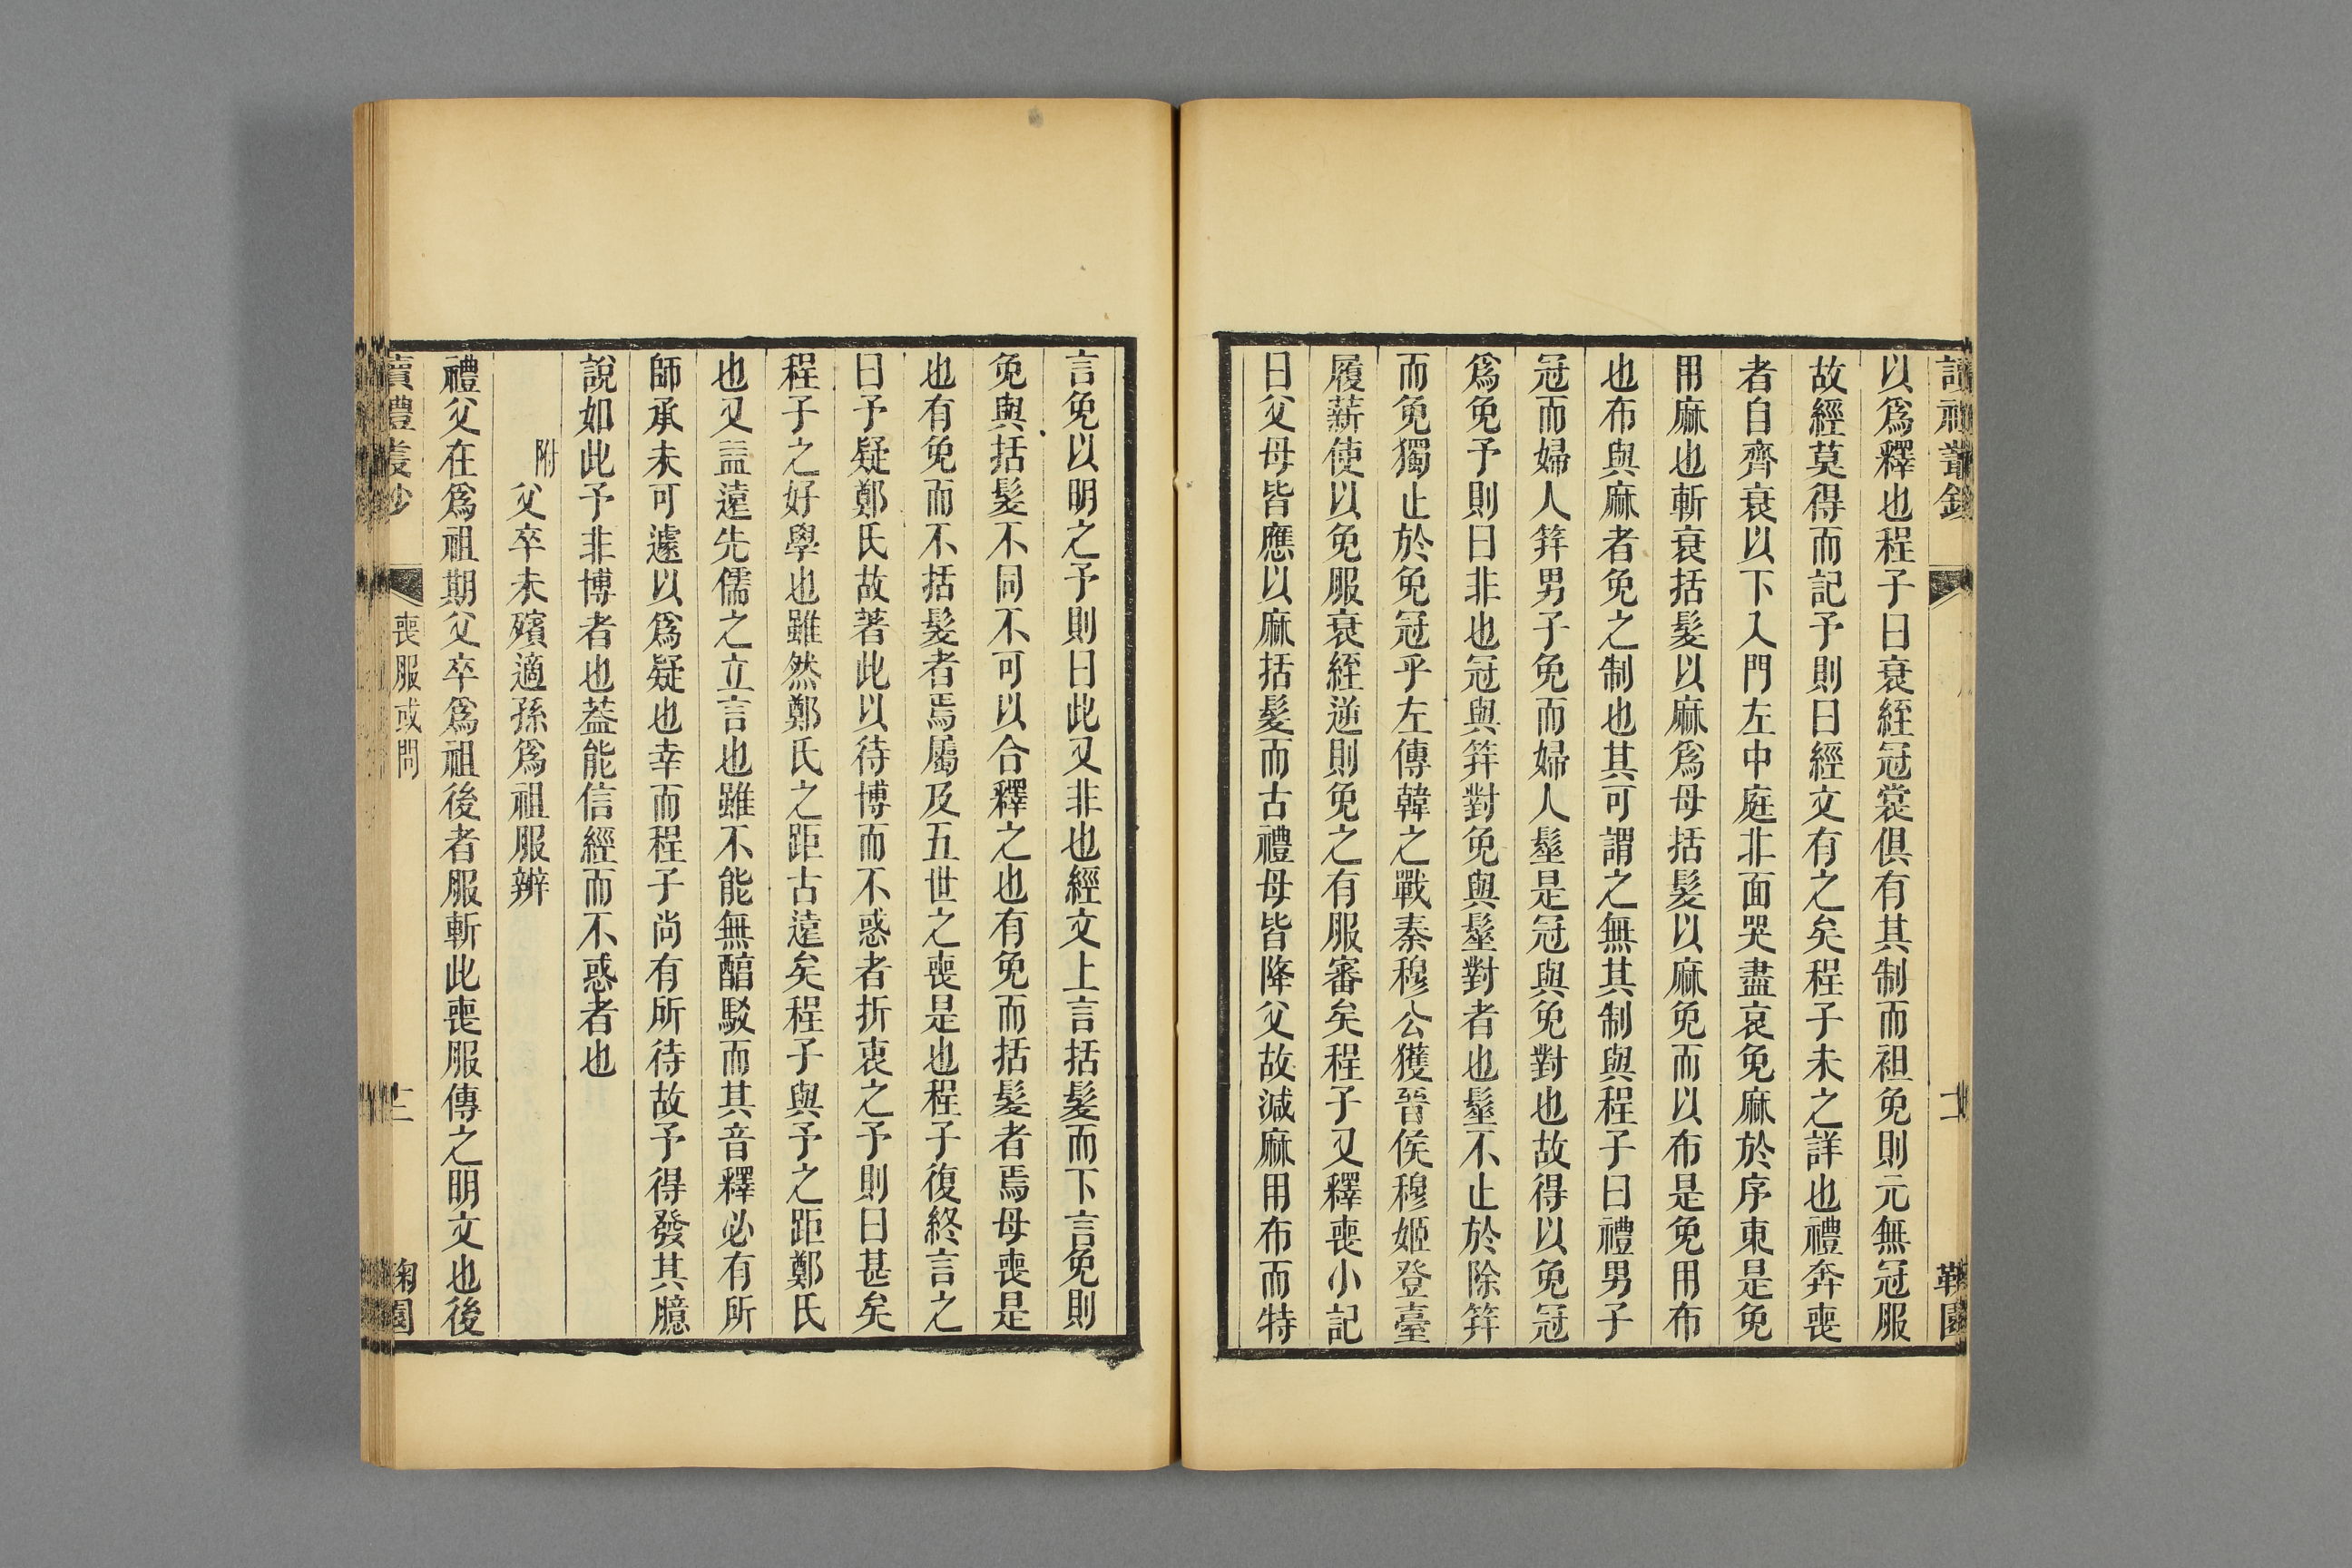 以爲釋也程子曰衰絰冠裳俱有其制而袒免則元無冠服
故經莫得而記予則曰經文有之矣程子未之詳也禮奔喪
者自齊衰以下入門左中庭北面哭盡哀免麻於序東是免
用麻也斬衰括髮以麻爲母括髮以麻免而以布是免用布
也布與麻者免之制也其可謂之無其制與程子曰禮男子
冠而婦人笄男子免而婦人髽是冠與免對也故得以免冠
爲免予則曰非也冠與笄對免與髽對者也髽不止於除笄
而免獨止於免冠乎左傳韓之戰秦穆公獲晉侯穆姬登臺
履薪使以免服衰絰逆則免之有服審矣程子又釋喪小記
曰父母皆應以麻括髮而古禮母皆降父故減麻用布而特
言免以明之予則曰此又非也經文上言括髮而下言免則
免與括髮不同不可以合釋之也有免而括髮者焉母喪是
也有免而不括髮者焉屬及五世之喪是也程子復終言之
曰予疑鄭氏故著此以待博而不惑者折衷之予則曰甚矣
程子之好學也雖然鄭氏之距古遠矣程子與予之距鄭氏
也又盖遠先儒之立言也雖不能無醕駁而其音釋必有所
師承未可遽以爲疑也幸而程子尚有所待故予得發其臆
說如此予非博者也葢能信經而不惑者也
附父卒未殯適孫爲祖服辨
禮父在爲祖期父卒爲祖後者服斬此喪服傳之明文也後
讀禮叢鈔 喪服或問 十二 鞠園